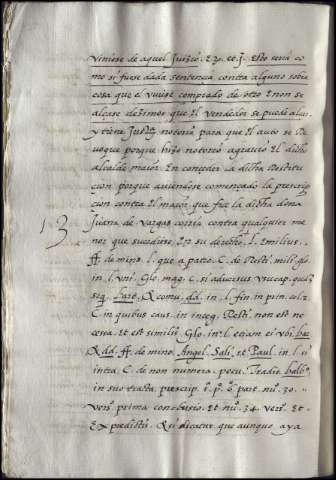 viniese de aquel Juizio. l. 20. tt. J. Esto sera co
mo si fuese dada sentencia contra alguno sobre
cosa que el vuiese comprado de otro e non se
alçase dezimos que el vendedor se puede alçar
y tiene Justiª notoria para que el auto se Re
uoque porque hizo notorio agrauio el dicho
alcalde maior. En conceder la dicha Restitu
cion porque auiendose començado la prescrip
cion contra el maior que fue la dicha dona
Juana de vargas corria contra qualquier me
13
nor que sucediese en su derecho l. Emilius.
ff. de mino. l. que a patre. C. de Resti. mili. glo.
in. l. vni. Glo. mag. C. si aduersus vsucap.
sig. Pare. R comu. dd. in. l. fin. in prin. col. 2.
C. in quibus caus. in integ. Resti. non est ne
cessa. et est similis Glo. in. l. etiam ei vbi bar.
R dd. ff. de mino. Angel. Sali. et Paul. in. l. si
intra. C. de non numera. pecu. Tradit balb.
in suo tracta. prescrip. 1. p. 6. part. nu. 30.
versi. prima conclusio. et nu. 34. versi. et
ex predictis. R si dicatur que aunque aya